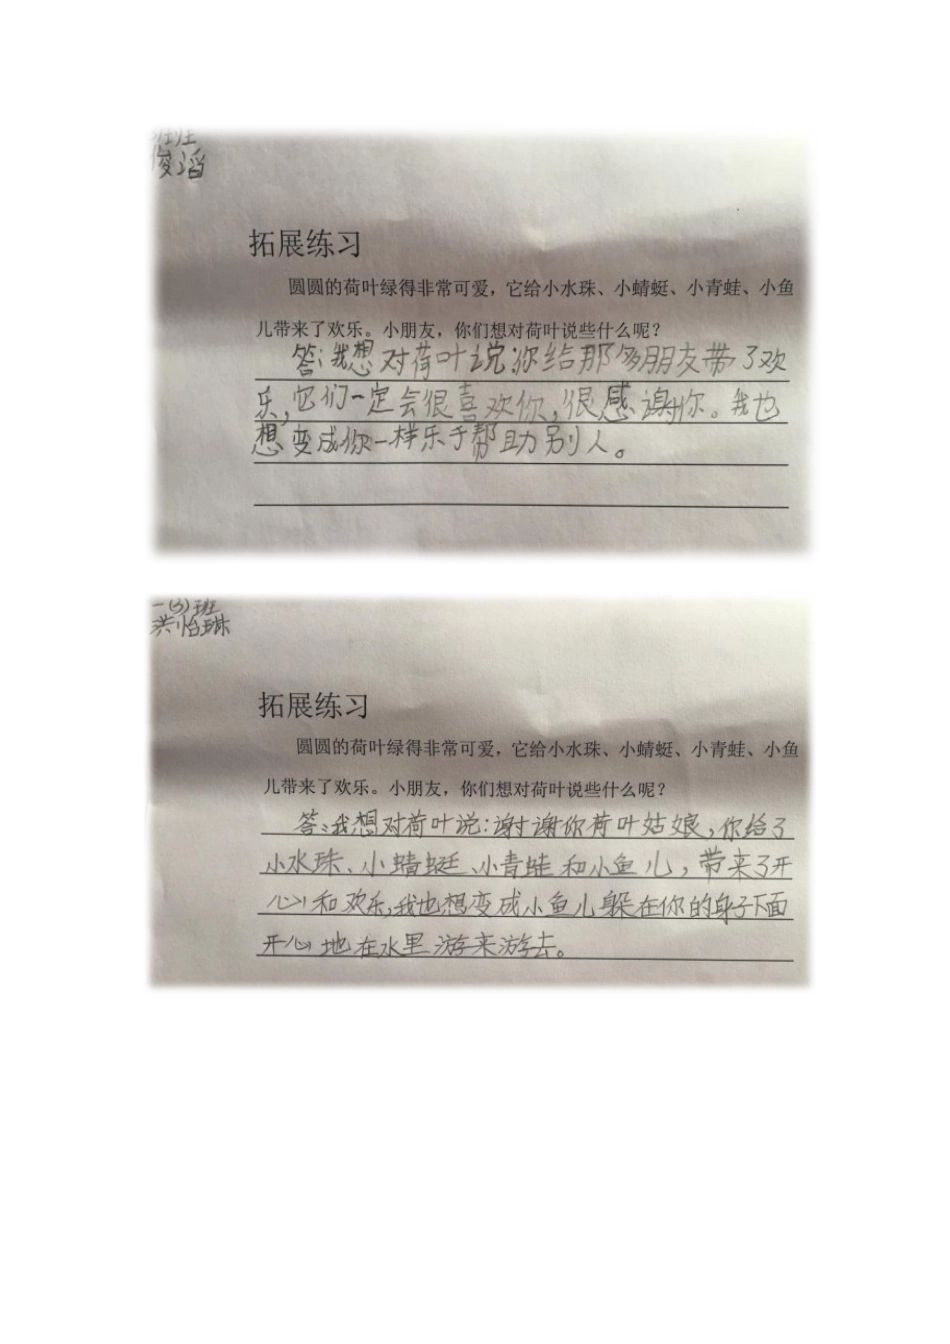 班
俊滔
拓展练习
圆圆的荷叶绿得非常可爱，它给小水珠、小蜻蜓、小青蛙、小鱼
儿带来了欢乐。小朋友，你们想对荷叶说些什么呢？
答：我想对荷叶说你给那多朋友带了欢
乐，它们一定会很喜欢你，很感谢你。我也
想变成你一样乐于帮助别人。
一(3)班
洪怡琳
拓展练习
圆圆的荷叶绿得非常可爱，它给小水珠、小蜻蜓、小青蛙、小鱼
儿带来了欢乐。小朋友，你们想对荷叶说些什么呢？
答：我想对荷叶说：谢谢你荷叶姑娘，你给了
小水珠、小蜻蜓、小青蛙和小鱼儿，带来了开
心和欢乐，我也想变成小鱼儿躲在你的身子下面
开心地在水里游来游去。